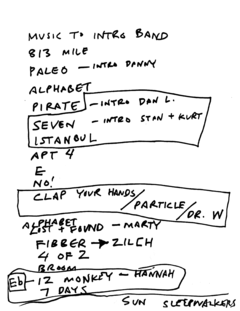 MUSIC TO INTRO BAND
813 MILE
PALEO - INTRO DANNY
ALPHABET
PIRATE - INTRO DAN L.
SEVEN - INTRO STAN + KURT
ISTANBUL
APT 4
E
NO!
CLAP YOUR HANDS / PARTICLE / DR. W
ALPHABET
LOST + FOUND - MARTY
FIBBER → ZILCH
4 OF 2
BROOM
Eb - 12 MONKEY - HANNAH
7 DAYS
SUN SLEEPWALKERS